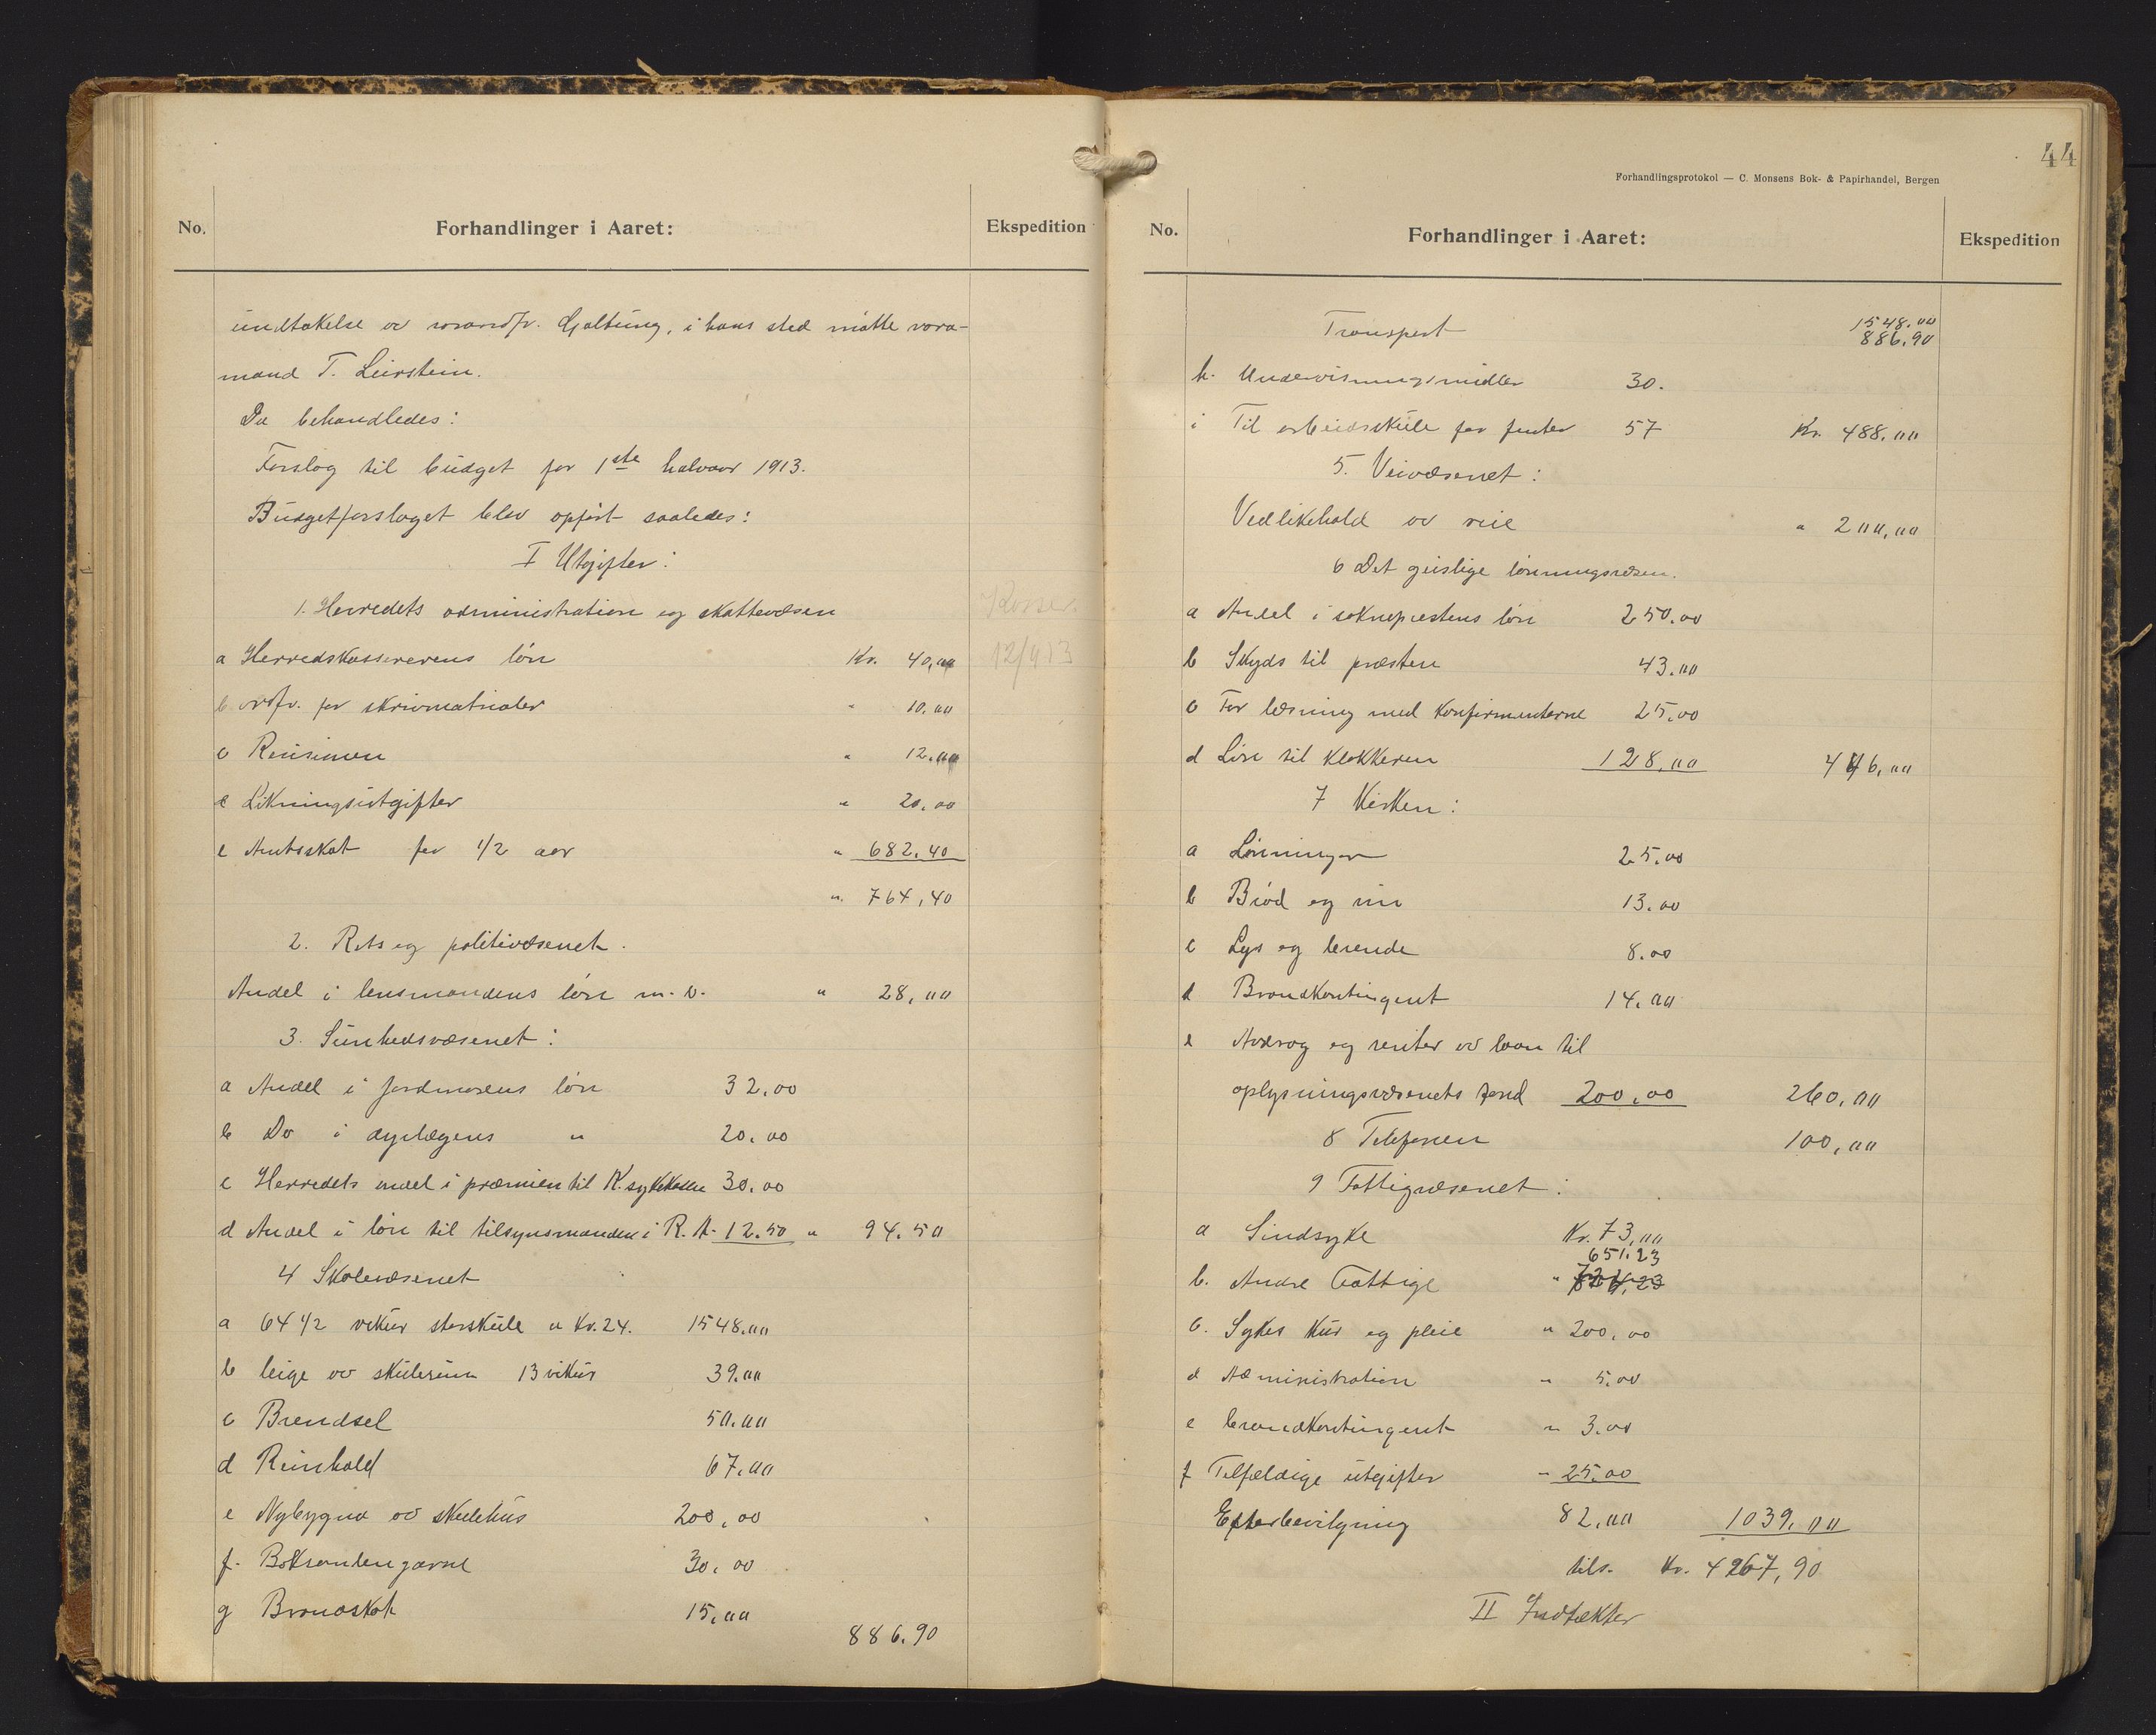 No.
Forhandlinger i Aaret:
Ekspedition
undtakelse av Galtung, i hans sted møtte vara-
mand T. Leirstein.
Da behandledes:
Forslag til budget for 1ste halvaar 1913.
Budgetforslaget blev opført saaledes:
I Utgifter:
1. Herredets administration og skattevæsen
a Herredskassererens løn Kr. 40,00
12/9 13
b ordfr. for skrivmatrialer " 10.00
c Revisionen " 12.00
d Likningsutgifter " 20.00
e Amtsskat for 1/2 aar " 682.40
" 764,40
2. Rets og politivæsenet.
Andel i lensmandens løn m.v. " 28,00
3. Sunhedsvæsenet:
a Andel i jordmorens løn 32.00
b Do i dyrlægens " 20.00
c Herredets andel i præmien til K. sykekasse 30.00
d Andel i løn til tilsynsmanden i R. A. 12.50 " 94.50
4 Skolevæsenet
a 64 1/2 vikur storskule a Kr. 24. 1548.00
b leige av skulerum 13 vikur 39.00
c Brendsel 50.00
d Reinhald 67.00
e Nybygna av skulehus 200.00
f. Boksamlengarne 30.00
g Brandskat 15.00
886.90
44
Forhandlingsprotokol — C. Monsens Bok- & Papirhandel, Bergen
No.
Forhandlinger i Aaret:
Ekspedition
Transport 1548.00
886.90
h. Undervisningsmidler 30.
i Til arbeidsskule for jenter 57 Kr. 488.00
5. Veivæsenet:
Vedlikehald av veie " 200,00
6 Det geislige lønningsvæsen.
a Andel i soknepræstens løn 250.00
b Skyds til præsten 43.00
c For læsning med konfirmenterne 25.00
d Løn til klokkeren 128,00 446,00
7 Kirken:
a Lønninger 25.00
b Brød og vin 13.00
c Lys og 8.00
d Brandkontingent 14.00
e Avdrag og renter av laan til
oplysningsvæsenets fond 200.00 260,00
8 Telefonen 100,00
9 Fattigvæsenet:
a Sindsyke Kr. 73,00
651.23
b. Andre Fattige "
c. Sykes kur og pleie " 200,00
d Administration " 5.00
e brandkontingent " 3.00
f Tilfældige utgifter " 25.00
Efterbevilgning 82,00 1039,00
tils. Kr. 4267,90
II Indtækter